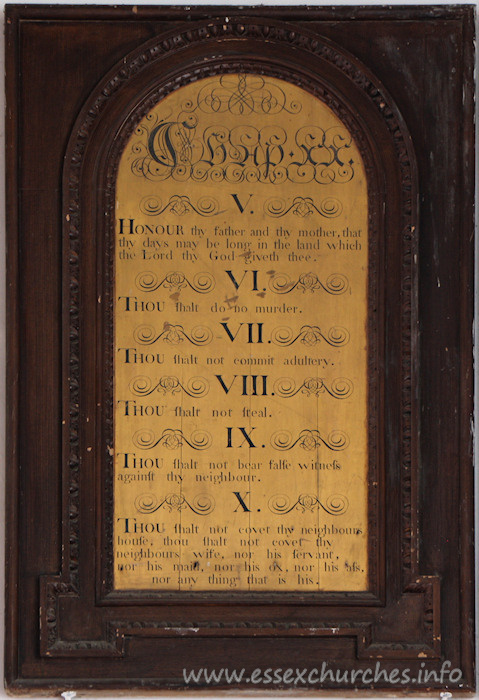 Chap. XX.
V.
HONOUR thy father and thy mother, that
thy days may be long in the land which
the Lord thy God giveth thee.
VI.
THOU ſhalt do no murder.
VII.
THOU ſhalt not commit adultery.
VIII.
THOU ſhalt not ſteal.
IX.
THOU ſhalt not bear falſe witneſs
againſt thy neighbour.
X.
THOU ſhalt not covet thy neighbours
houſe, thou ſhalt not covet thy
neighbours wife, nor his ſervant,
nor his maid, nor his ox, nor his aſs,
nor any thing that is his.
www.essexchurches.info